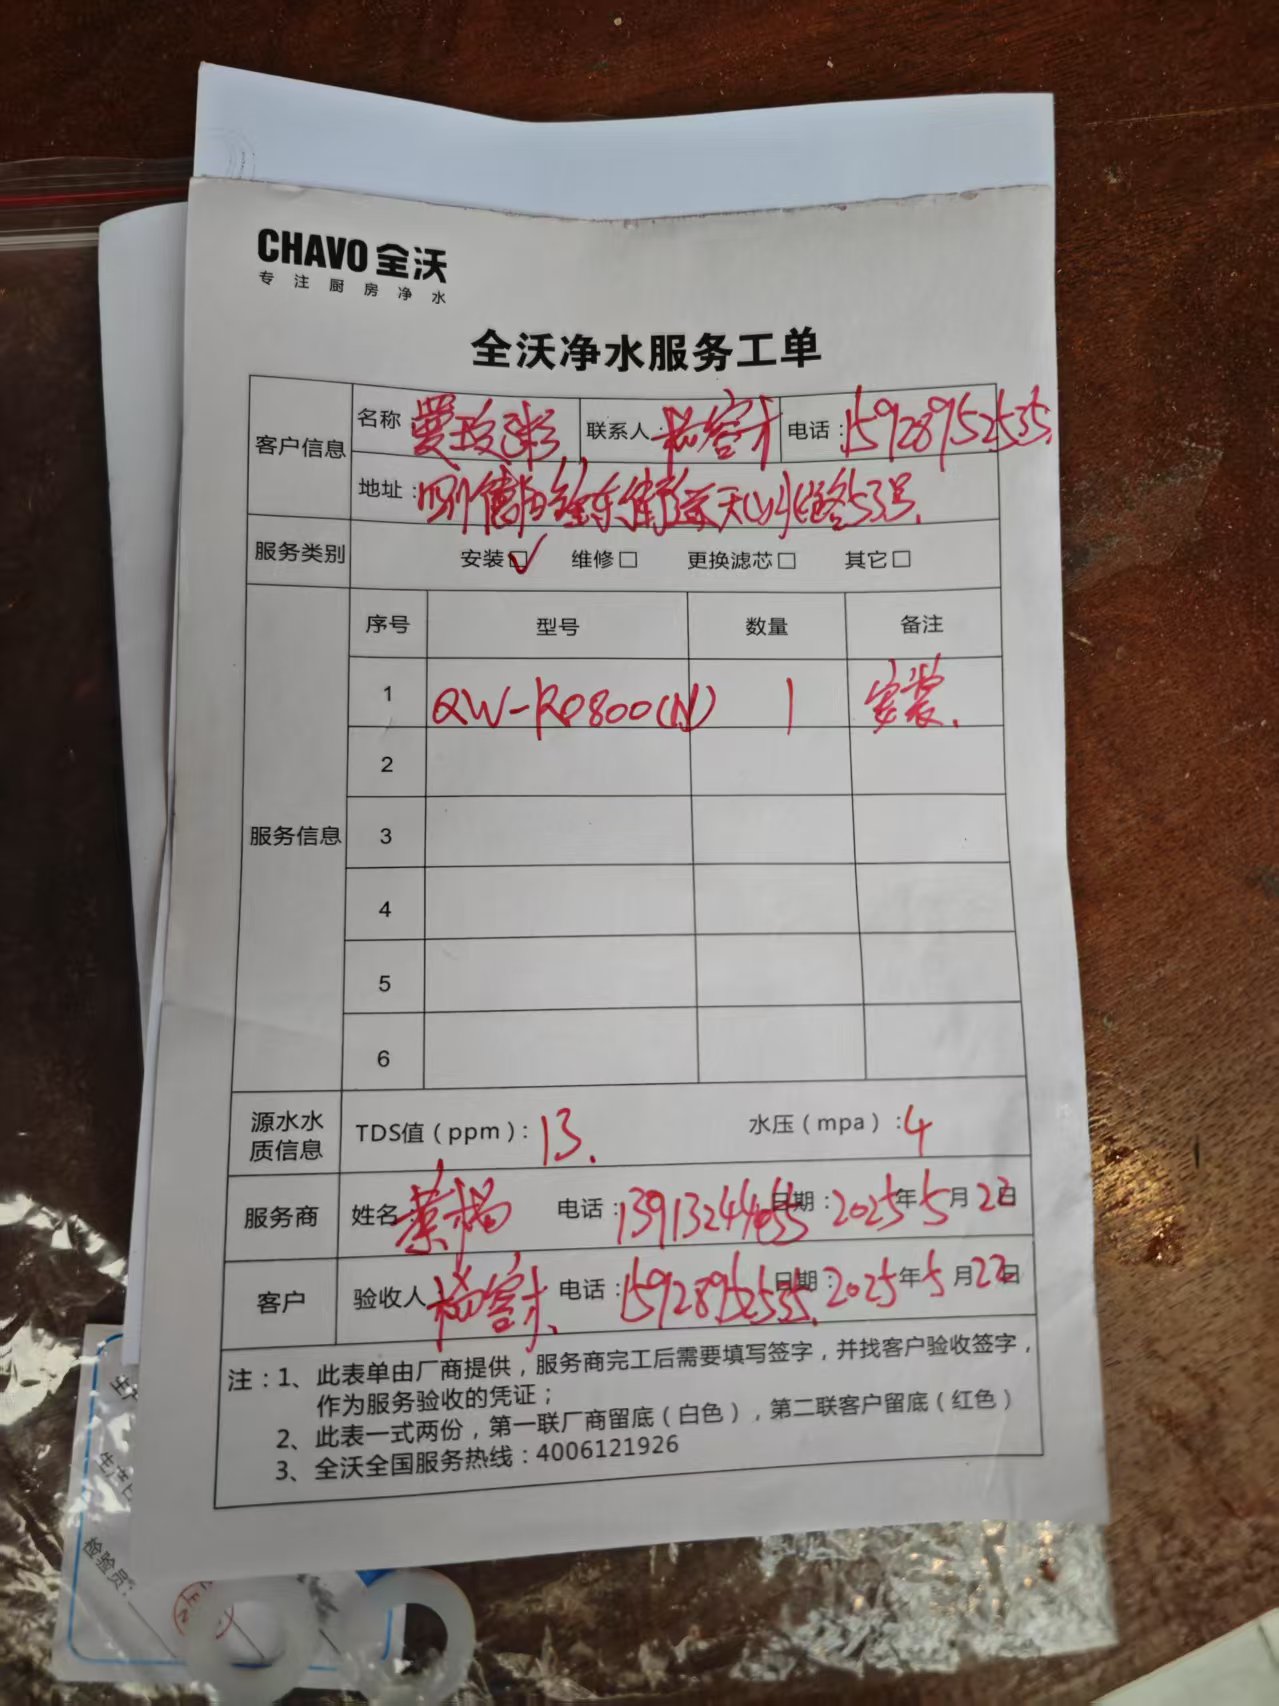 CHAVO 全沃
专注厨房净水
全沃净水服务工单
客户信息
名称
联系人: 杨客才
电话: 15928952535
地址:
服务类别
安装☑ 维修□ 更换滤芯□ 其它□
服务信息
序号 型号 数量 备注
1 QW-RO800(N) 1 安装.
2
3
4
5
6
源水水质信息
TDS值(ppm): 13.
水压(mpa): 4
服务商
姓名: 电话: 日期: 2025年5月22日
客户
验收人 杨客才 电话: 15928952535. 日期: 2025年5月22日
注:1、此表单由厂商提供,服务商完工后需要填写签字,并找客户验收签字,
作为服务验收的凭证;
2、此表一式两份,第一联厂商留底(白色),第二联客户留底(红色)
3、全沃全国服务热线:4006121926
检验员: